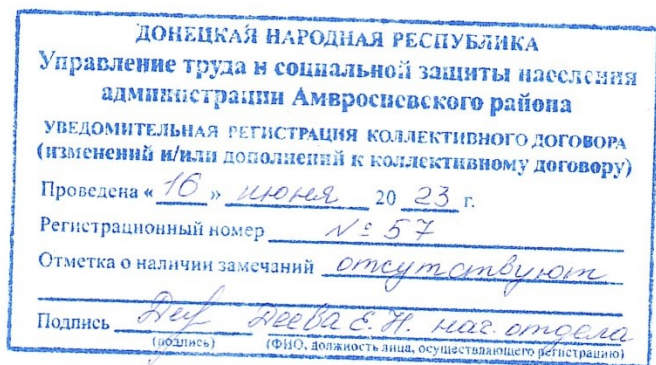 ДОНЕЦКАЯ НАРОДНАЯ РЕСПУБЛИКА
Управление труда и социальной защиты населения
администрации Амвросиевского района
УВЕДОМИТЕЛЬНАЯ РЕГИСТРАЦИЯ КОЛЛЕКТИВНОГО ДОГОВОРА
(изменений и/или дополнений к коллективному договору)
Проведена « 16 » июня 20 23 г.
Регистрационный номер № 57
Отметка о наличии замечаний отсутствуют
Подпись Деева Е. Н. нач. отдела
(подпись) (ФИО, должность лица, осуществляющего регистрацию)